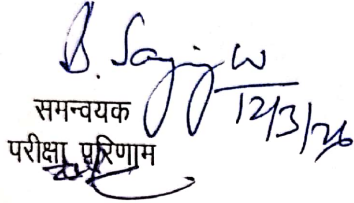 B. 
12/3/26
समन्वयक
परीक्षा परिणाम